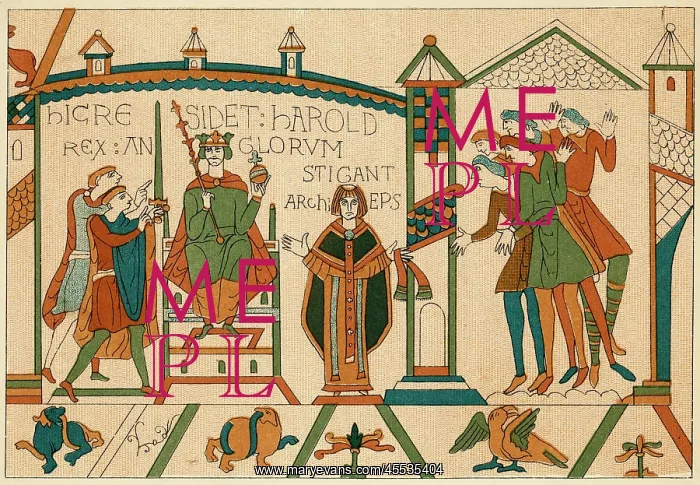 hIC RE SIDET : hAROLD
REX : AN GLORVM
STIGANT
ARChI EPS
ME
PL
ME
PL
www.maryevans.com/45535404